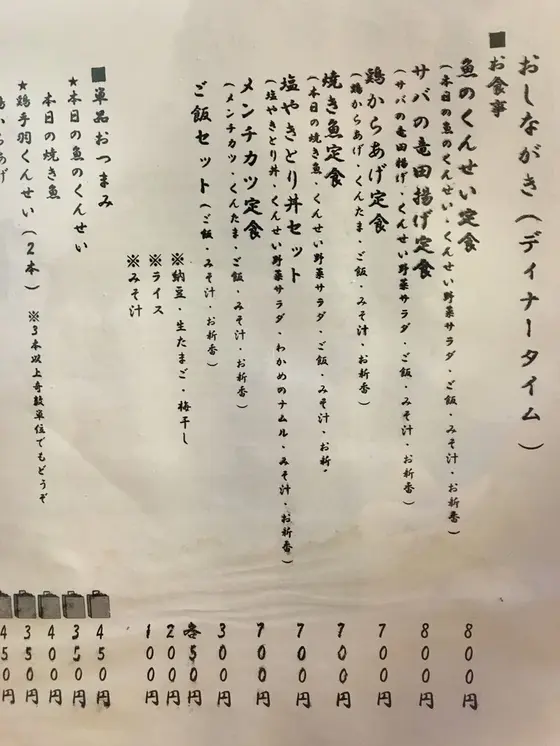 おしながき(ディナータイム)
■お食事
魚のくんせい定食
(本日の魚のくんせい・くんせい野菜サラダ・ご飯・みそ汁・お新香) 800円
サバの竜田揚げ定食
(サバの竜田揚げ・くんせい野菜サラダ・ご飯・みそ汁・お新香) 800円
鶏からあげ定食
(鶏からあげ・くんたま・ご飯・みそ汁・お新香) 700円
焼き魚定食
(本日の焼き魚・くんせい野菜サラダ・ご飯・みそ汁・お新 700円
塩やきとり丼セット
(塩やきとり丼・くんせい野菜サラダ・わかめのナムル・みそ汁・お新香) 700円
メンチカツ定食
(メンチカツ・くんたま・ご飯・みそ汁・お新香) 700円
ご飯セット(ご飯・みそ汁・お新香) 300円
※納豆・生たまご・梅干し 各50円
※ライス 200円
※みそ汁 100円
■単品おつまみ 450円
★本日の魚のくんせい 350円
本日の焼き魚 400円
★鶏手羽くんせい(2本) ※3本以上奇数単位でもどうぞ 350円
鶏からあげ 450円